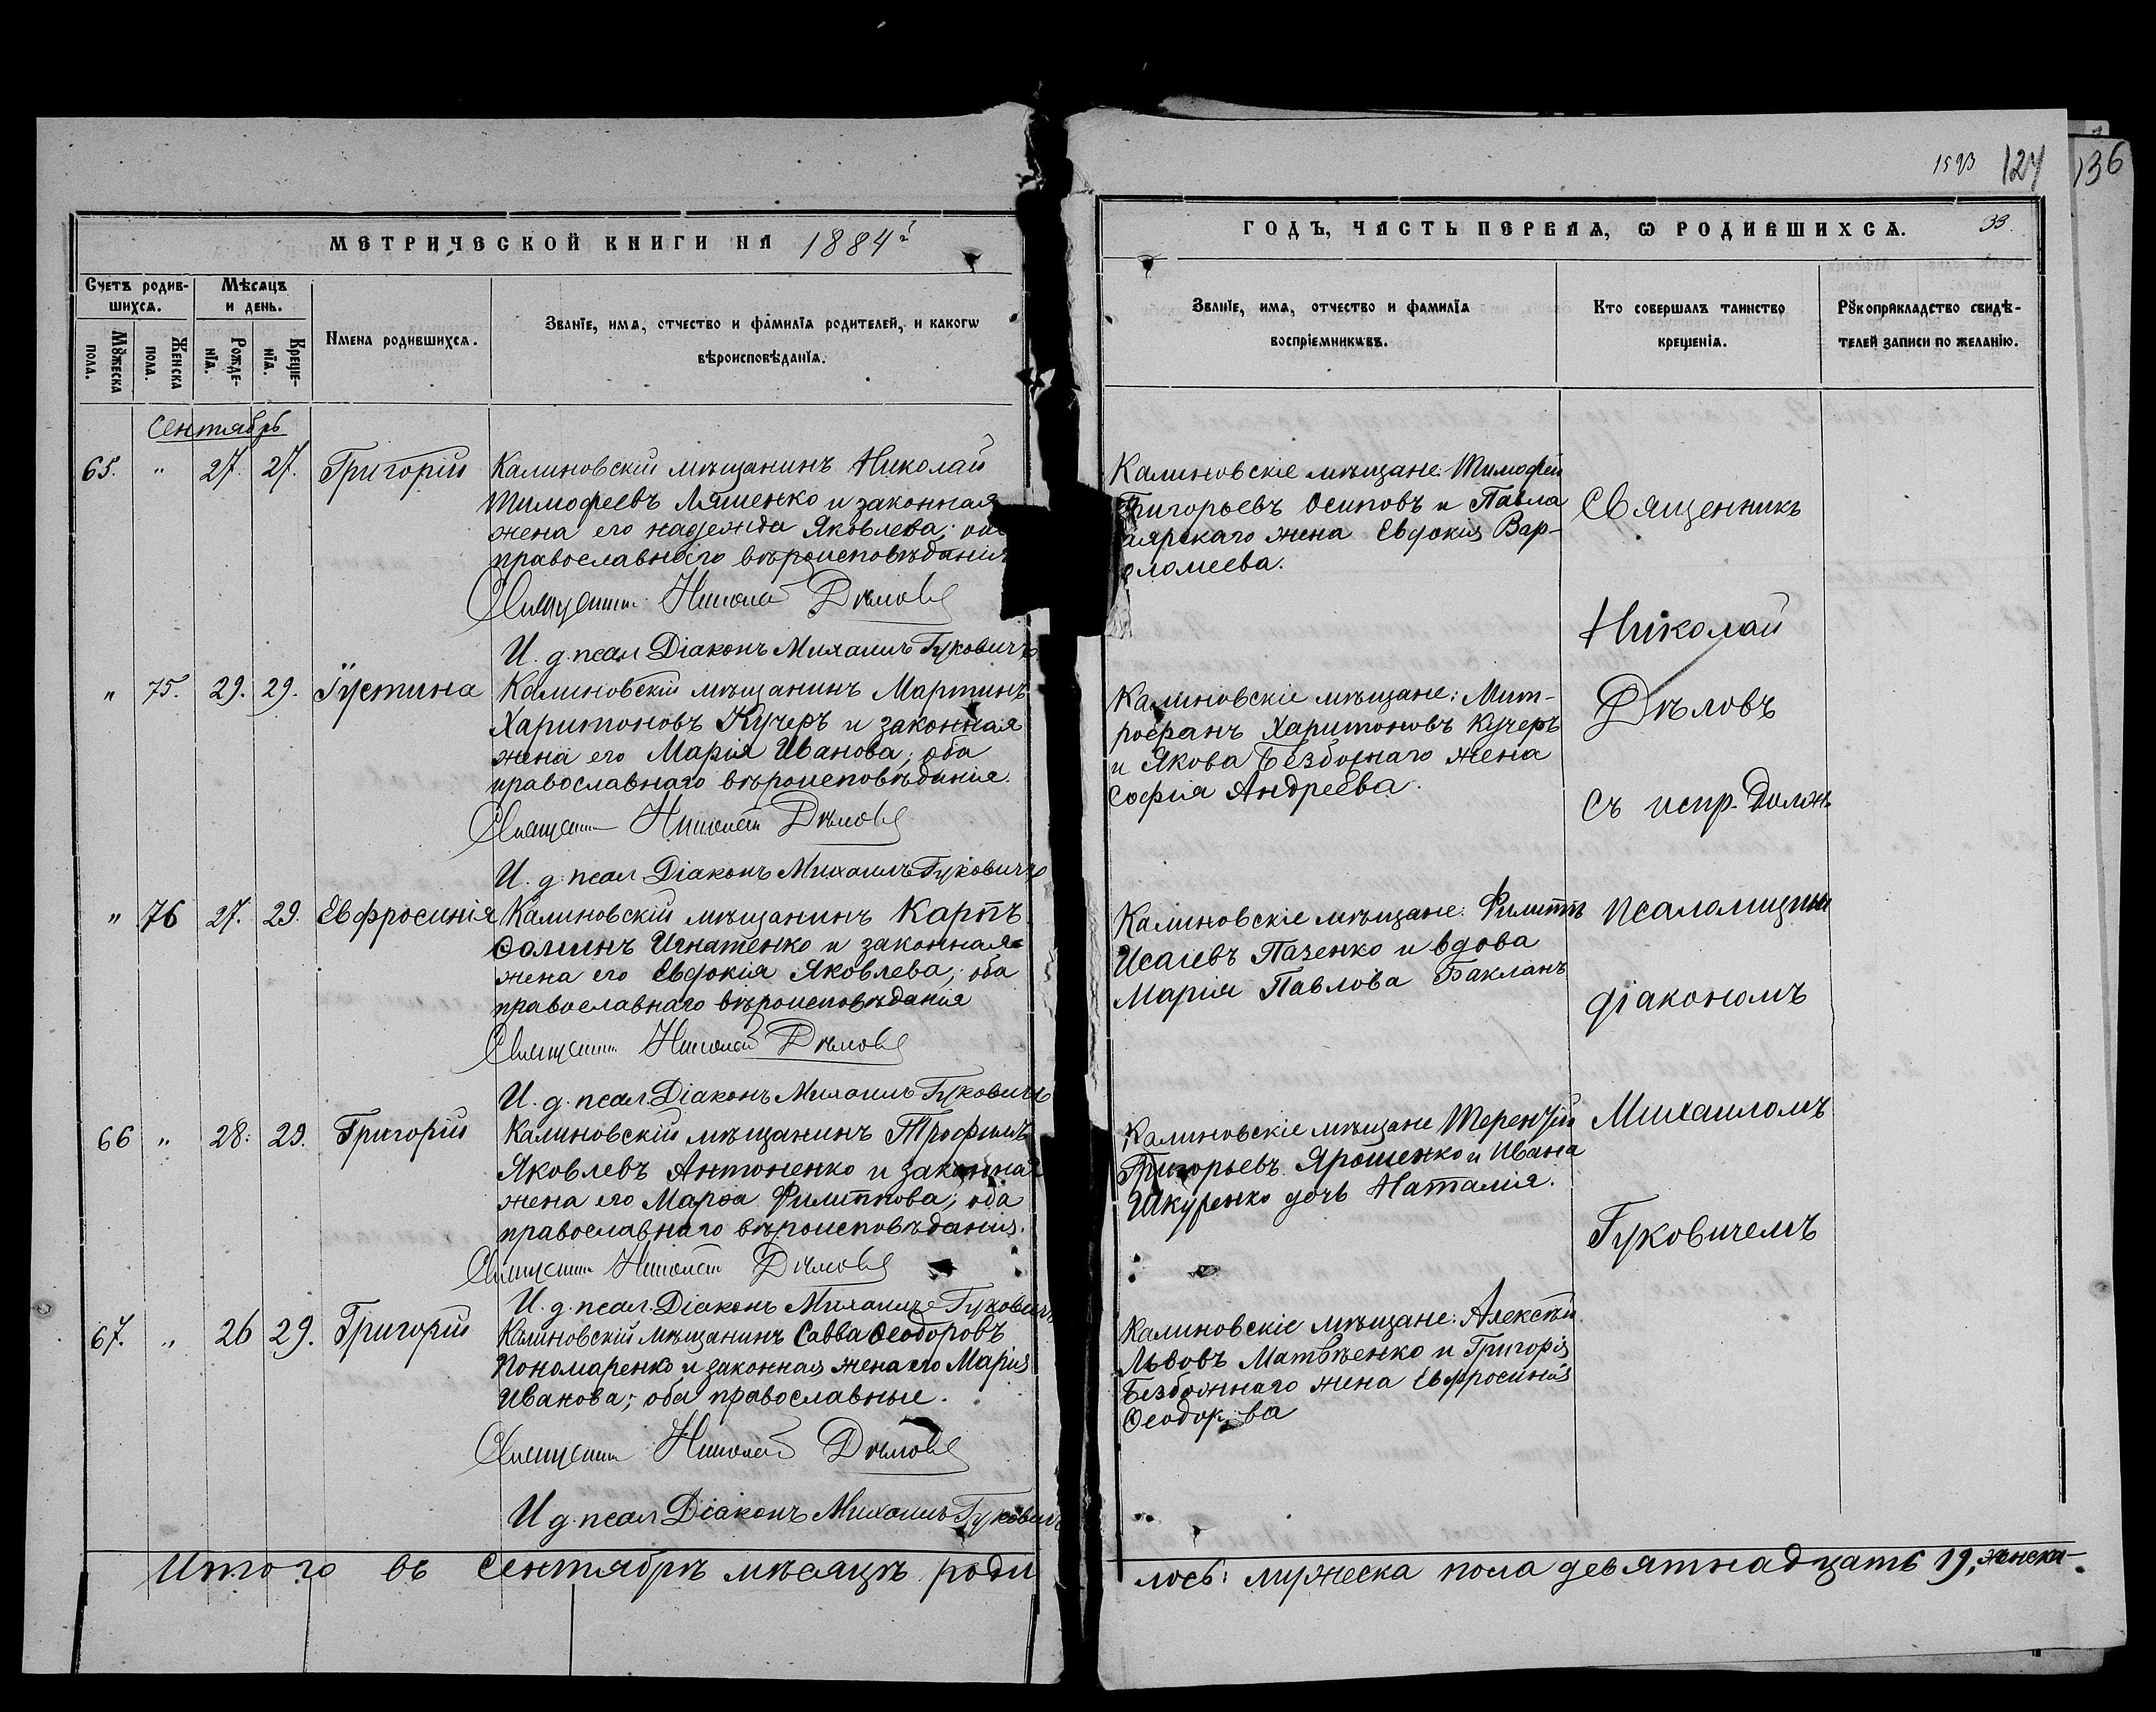 1593 124 136
МЕТРИЧЕСКОЙ КНИГИ НА 1884й
ГОДЪ, ЧАСТЬ ПЕРВАЯ, Ѡ РОДИВШИХСѦ. 33.
Счетъ родив-
шихсѧ.
Мѣсѧцъ
и день.
Мꙋжеска
пола.
Женска
пола.
Рожде-
нїѧ.
Креще-
нїѧ.
Имена родившихсѧ.
Званїе, имѧ, отчество и фамилїѧ родителей, и какогѡ
вѣроисповѣданїѧ.
Званїе, имѧ, отчество и фамилїѧ
воспрїемникѡвъ.
Кто совершалъ таинство
крещенїѧ.
Рꙋкоприкладство свидѣ-
телей записи по желанїю.
Сентябрь
65. " 27. 27. Григорій
Калиновскій мѣщанинъ Николай
Тимофеевъ Ляшенко и законная
жена его Надежда Яковлева; оба
православнаго вѣроисповѣданія
Священникъ Николай Дѣловъ
И. д. псал. Діаконъ Михаилъ Гуковичъ
Калиновскіе мѣщане: Тимофей
Григорьевъ Осиповъ и Павла
аярскаго жена Евдокія Вар-
оломеева.
" 75. 29. 29. Іустина
Калиновскій мѣщанинъ Мартинъ
Харитоновъ Кучеръ и законная
жена его Марія Иванова; оба
православнаго вѣроисповѣданія.
Священникъ Николай Дѣловъ
И. д. псал. Діаконъ Михаилъ Гуковичъ
Калиновскіе мѣщане: Мит-
рофанъ Харитоновъ Кучеръ
и Якова Безбожнаго жена
Софія Андреева.
" 76 27. 29. Евфросинія
Калиновскій мѣщанинъ Карпъ
Ѳоминъ Игнатенко и законная
жена его Евдокія Яковлева; оба
православнаго вѣроисповѣданія
Священникъ Николай Дѣловъ
И. д. псал. Діаконъ Михаилъ Гуковичъ
Калиновскіе мѣщане: Филиппъ
Исаевъ Пазенко и вдова
Марія Павлова Бакланъ
66 " 28. 29. Григорій
Калиновскій мѣщанинъ Трофимъ
Яковлевъ Антоненко и законная
жена его Марѳа Филиппова; оба
православнаго вѣроисповѣданія.
Священникъ Николай Дѣловъ
И. д. псал. Діаконъ Михаилъ Гуковичъ
Калиновскіе мѣщане Терентій
Григорьевъ Ярошенко и Ивана
Шкуренко дочь Наталія.
67. " 26 29. Григорій
Калиновскій мѣщанинъ Савва Ѳеодоровъ
Пономаренко и законная жена его Марія
Иванова; оба православные.
Священникъ Николай Дѣловъ
И д. псал. Діаконъ Михаилъ Гуковичъ
Калиновскіе мѣщане: Алексѣй
Львовъ Матвѣенко и Григорія
Безбожнаго жена Евфросинія
Ѳеодорова
Священникъ
Николай
Дѣловъ
съ испр. должн.
псаломщика
діакономъ
Михаиломъ
Гуковичемъ
Итого въ Сентябрѣ мѣсяцѣ роди
лось: мужеска пола девятнадцать 19, женска-